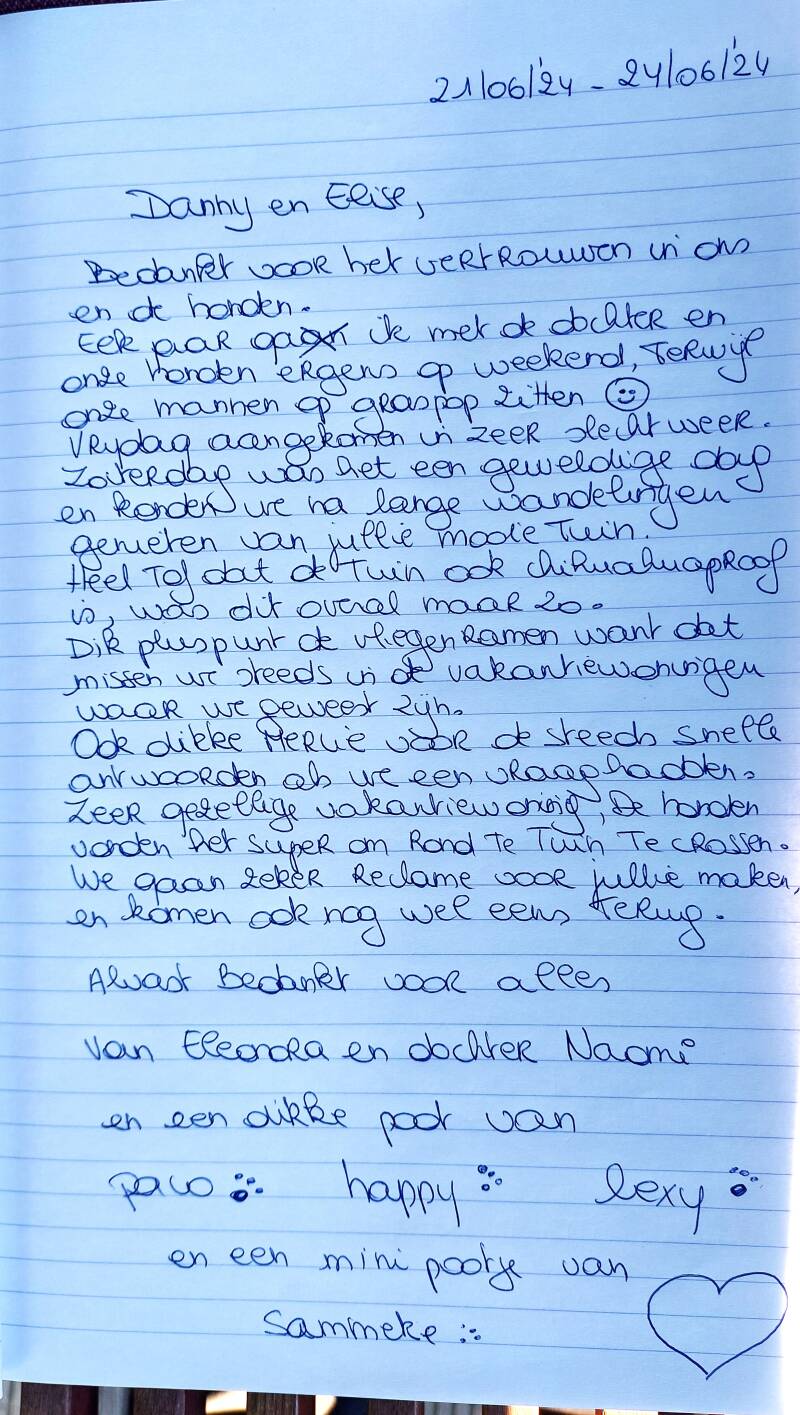 21/06/'24 - 24/06/'24
Danny en Elise,
Bedankt voor het vertrouwen in ons
en de honden.
Elk jaar ga ik met de dochter en
onze honden ergens op weekend, terwijl
onze mannen op graspop zitten ☺
Vrijdag aangekomen in zeer slecht weer.
Zaterdag was het een geweldige dag
en konden we na lange wandelingen
genieten van jullie mooie tuin.
Heel tof dat de tuin ook chihuahuaproof
is, was dit overal maar zo.
Dik pluspunt de vliegenramen want dat
missen we steeds in de vakantiewoningen
waar we geweest zijn.
Ook dikke merlie voor de steeds snelle
antwoorden als we een vraag hadden.
Zeer gezellige vakantiewoning, De honden
vonden het super om rond te tuin te crossen.
We gaan zeker reclame voor jullie maken,
en komen ook nog wel eens terug.
Alvast Bedankt voor alles
van Eleonora en dochter Naomi
en een dikke poot van
paco happy lexy
en een mini pootje van
Sammeke